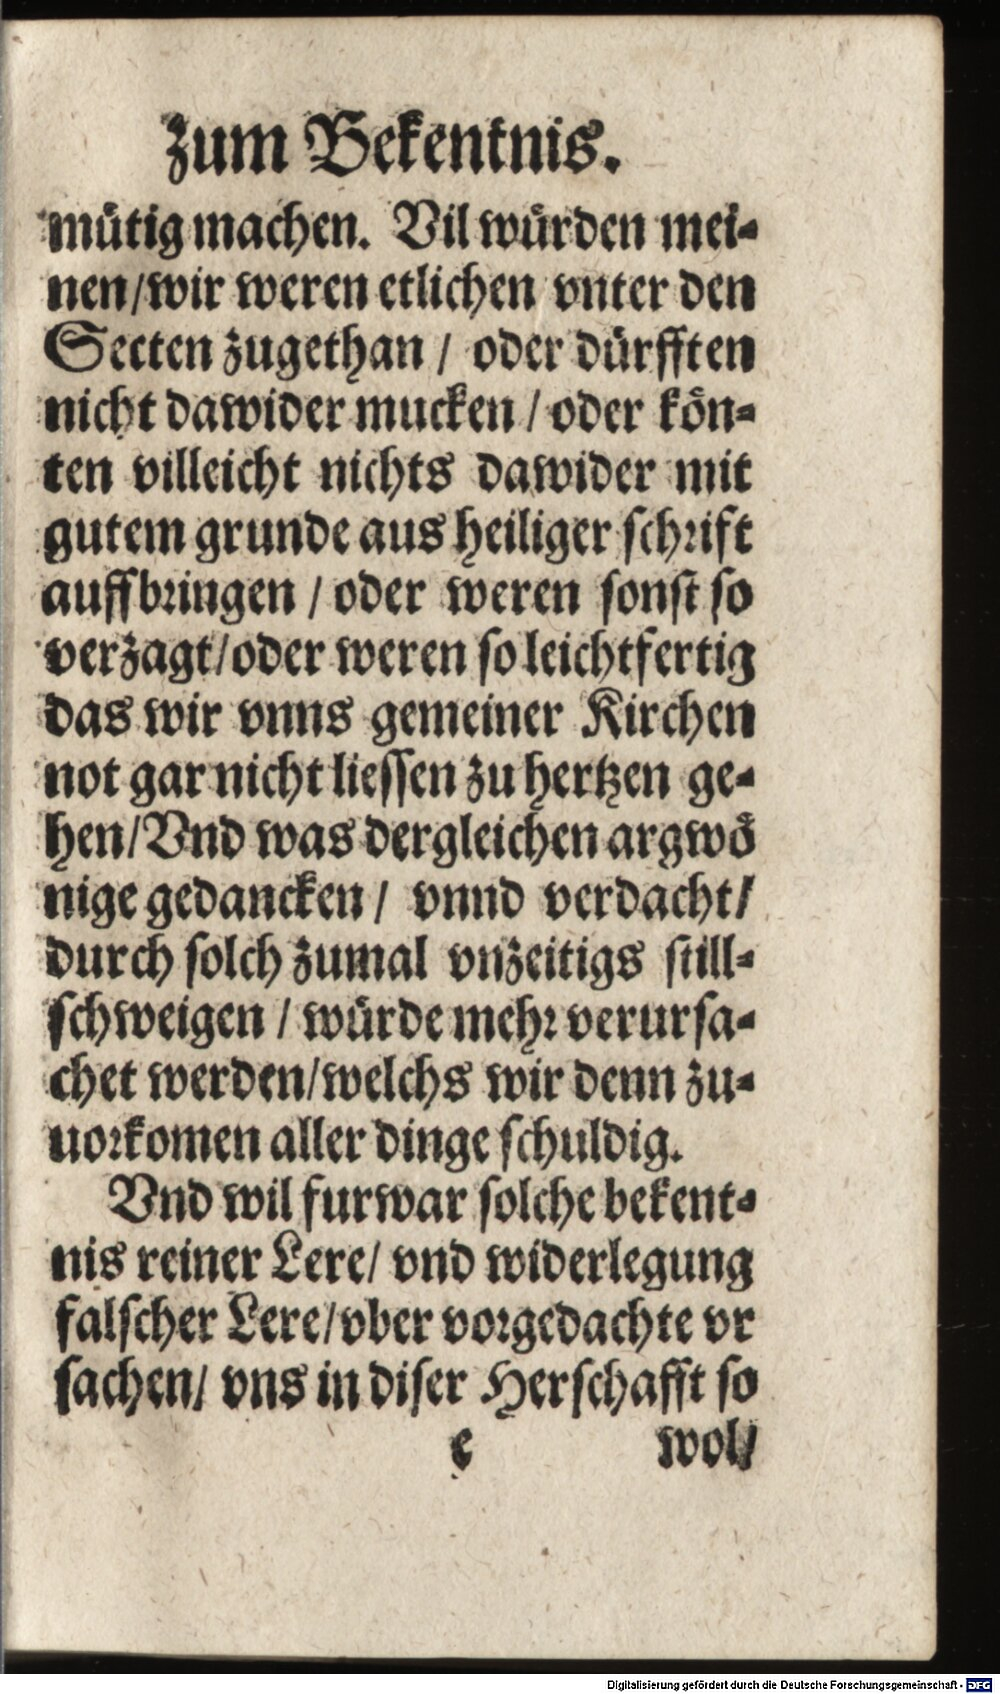 zum Bekentnis.
mütig machen. Vil würden mei-
nen/wir weren etlichen vnter den
Secten zugethan / oder dürfften
nicht dawider mucken / oder kön-
ten villeicht nichts dawider mit
gutem grunde aus heiliger schrift
auffbringen / oder weren sonst so
verzagt/oder weren so leichtfertig
das wir vnns gemeiner Kirchen
not gar nicht liessen zu hertzen ge-
hen/Vnd was dergleichen argwö
nige gedancken / vnnd verdacht/
durch solch zumal vnzeitigs still-
schweigen / würde mehr verursa-
chet werden/welchs wir denn zu-
uorkomen aller dinge schuldig.
Vnd wil furwar solche bekent-
nis reiner Lere/ vnd widerlegung
falscher Lere/vber vorgedachte vr
sachen/ vns in diser Herschafft so
c wol/
Digitalisierung gefördert durch die Deutsche Forschungsgemeinschaft - DFG